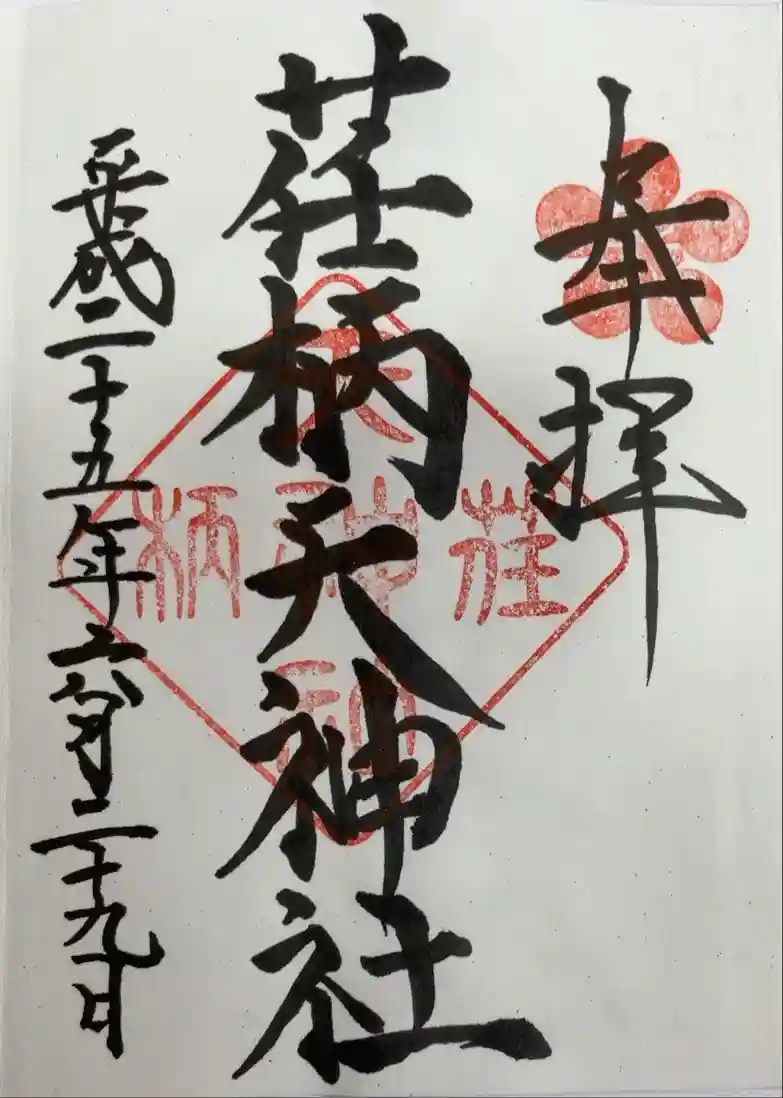 奉拝
荏柄天神社
平成二十五年六月二十九日
荏柄天神社